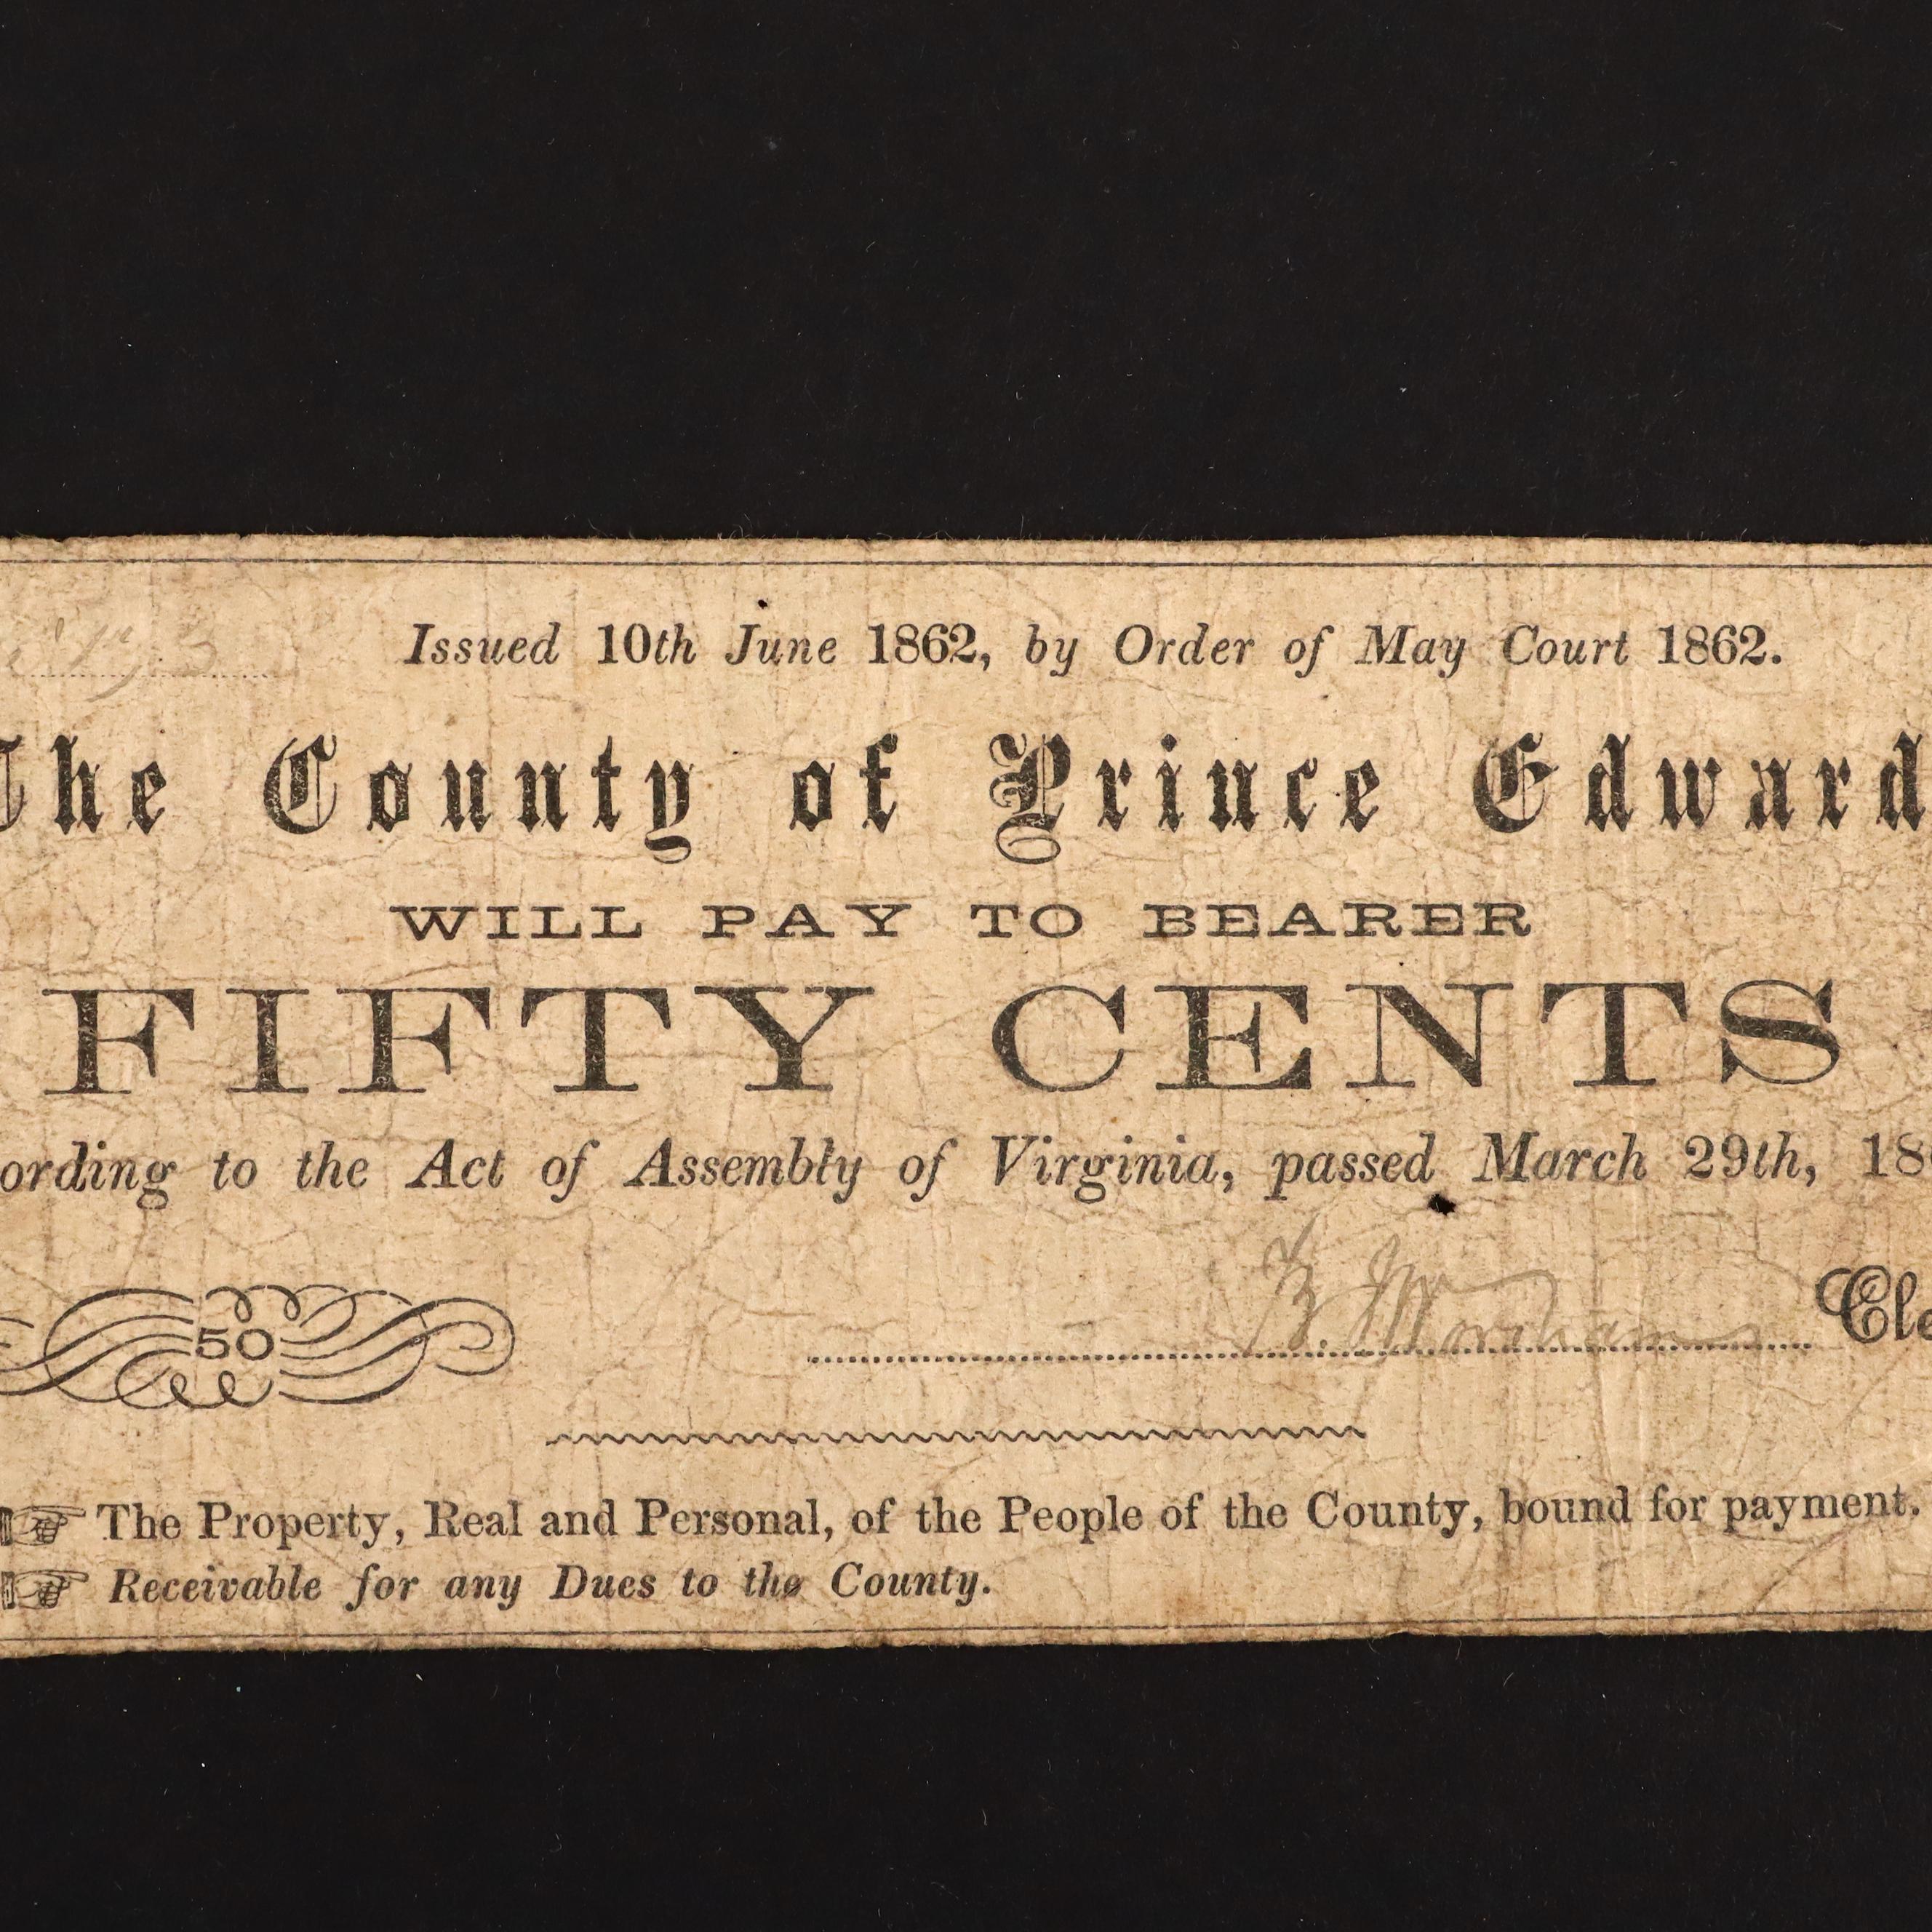 Issued 10th June 1862, by Order of May Court 1862.
The County of Prince Edward
WILL PAY TO BEARER
FIFTY CENTS
ording to the Act of Assembly of Virginia, passed March 29th, 18
50
Cle
The Property, Real and Personal, of the People of the County, bound for payment.
Receivable for any Dues to the County.